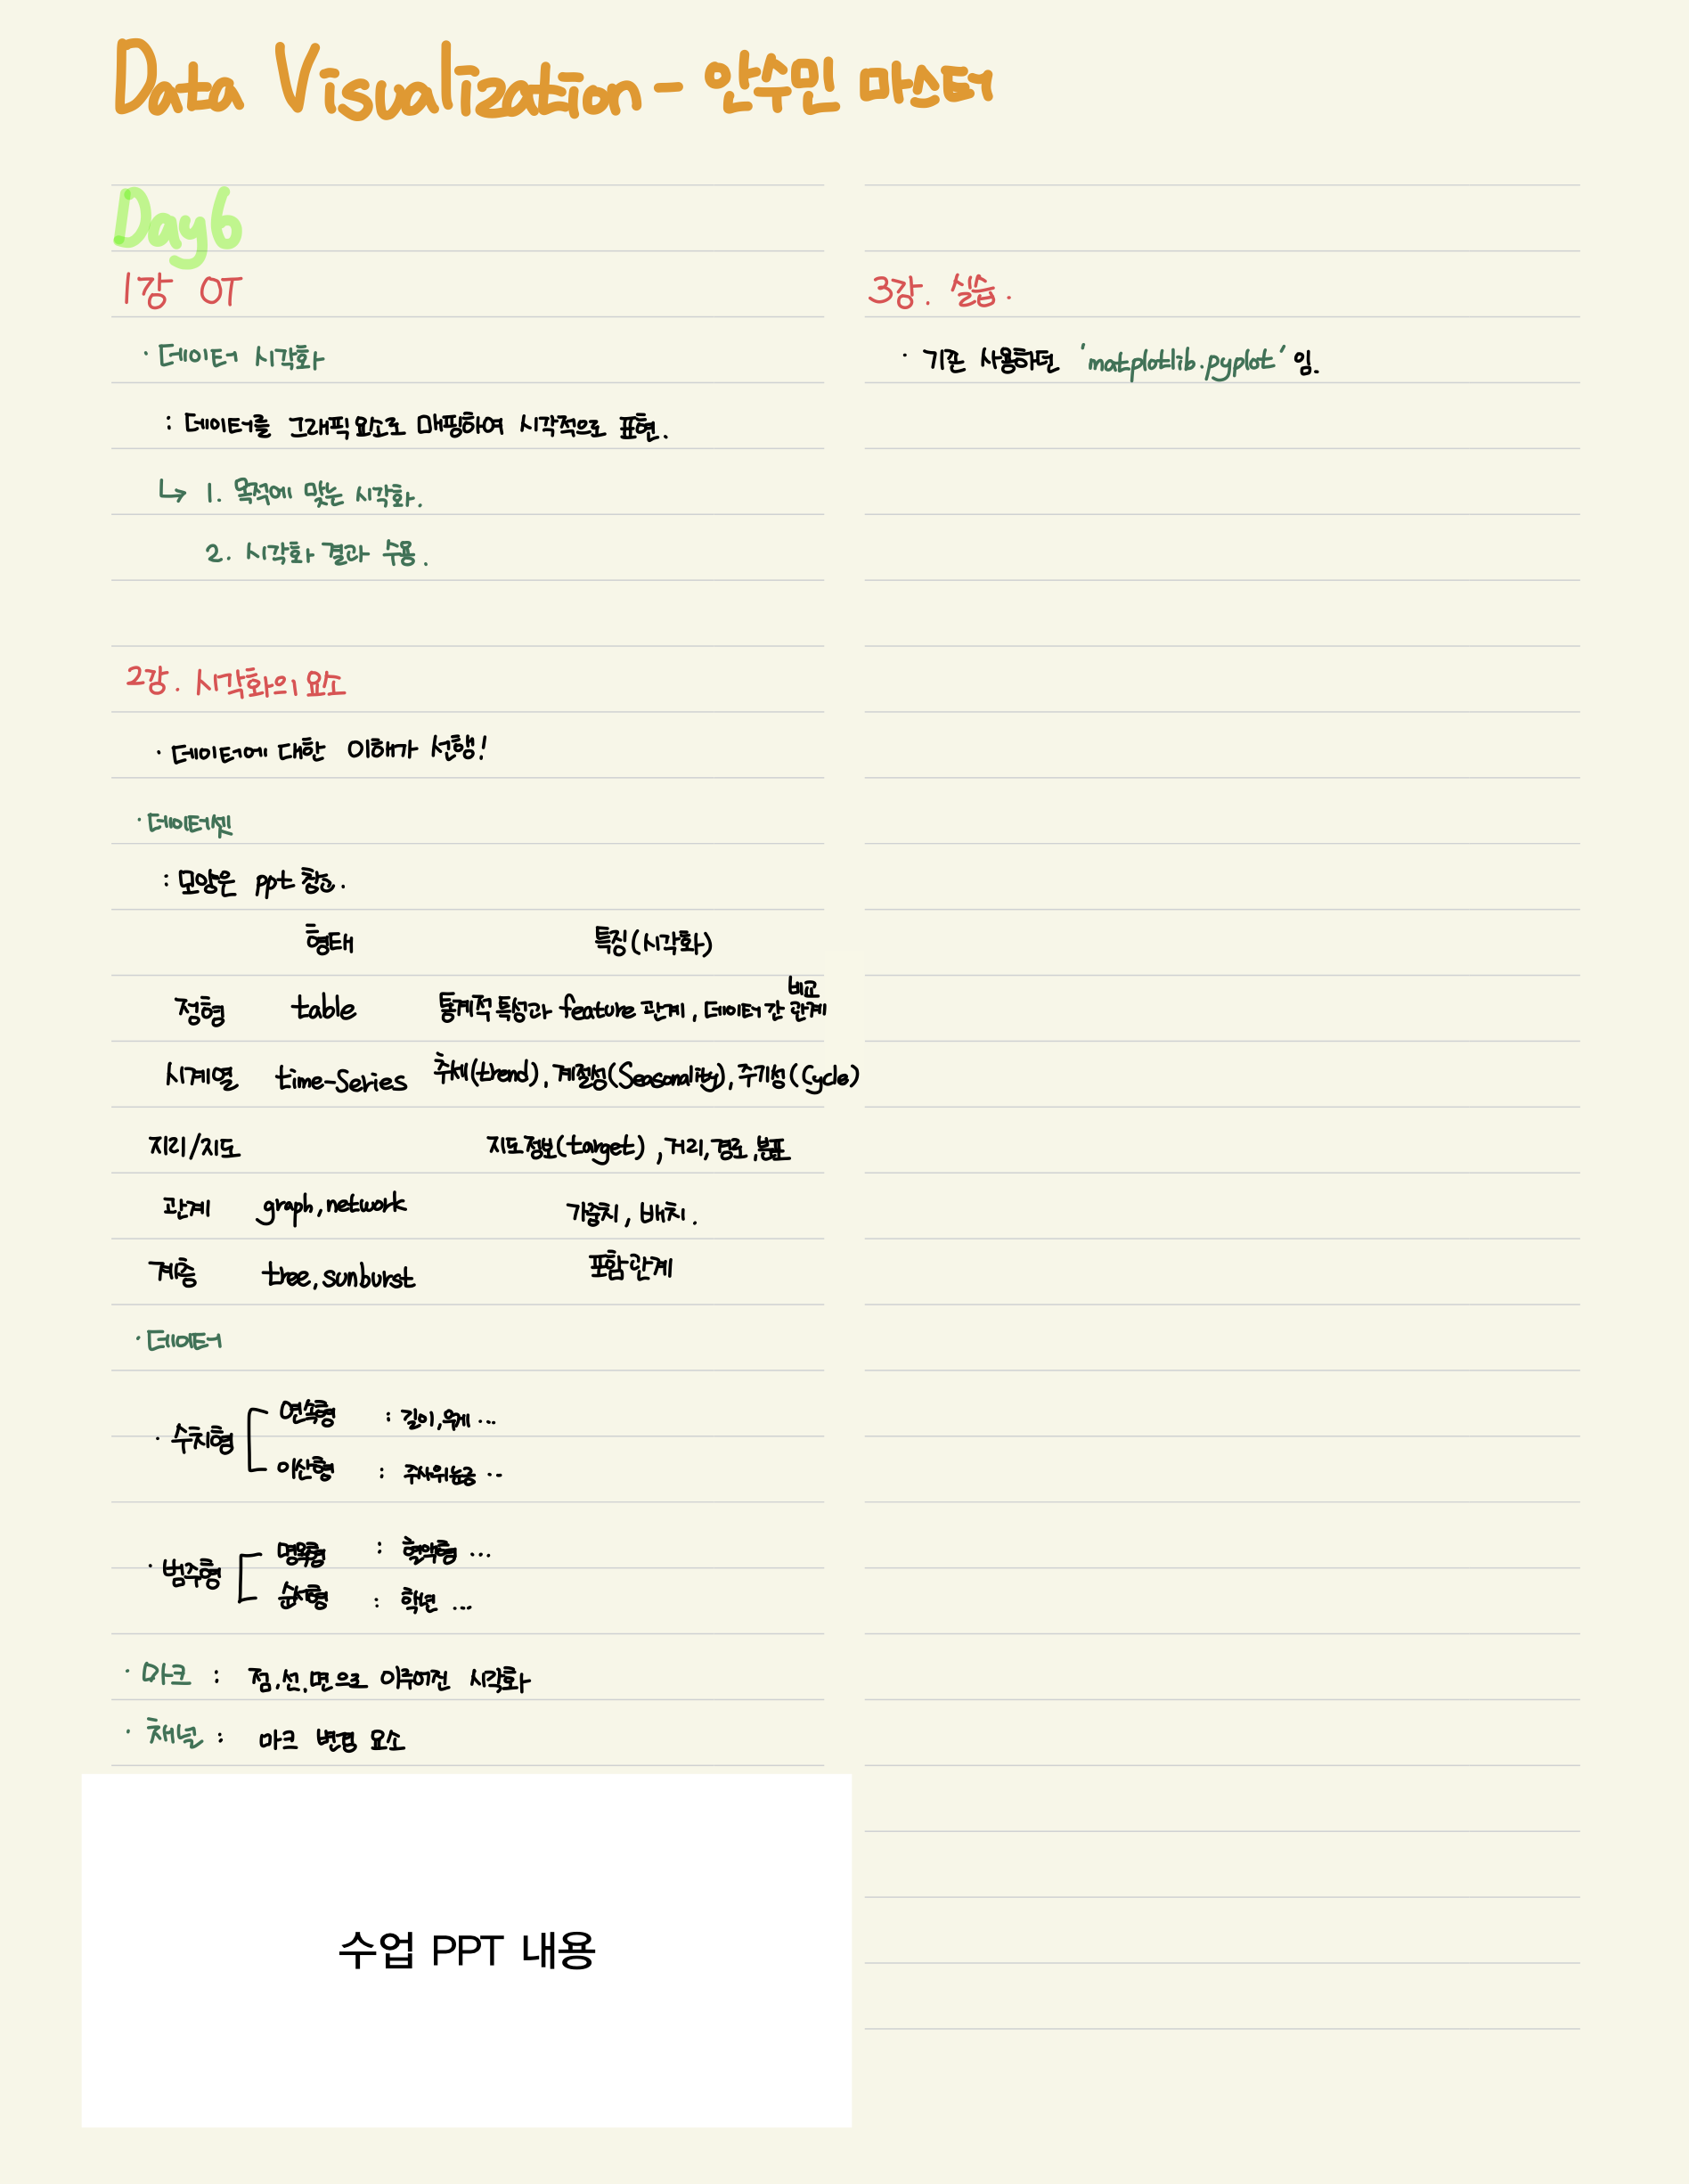 Data Visualization - 안수민 마스터
Day6
1강 OT
· 데이터 시각화
: 데이터를 그래픽 요소로 매핑하여 시각적으로 표현.
↳ 1. 목적에 맞는 시각화.
2. 시각화 결과 수용.
2강. 시각화의 요소
· 데이터에 대한 이해가 선행!
· 데이터셋
: 모양은 ppt 참고.
형태 특징(시각화)
정형 table 통계적 특성과 feature 관계, 데이터 간 관계
비교
시계열 time-Series 추세(trend), 계절성(Seasonality), 주기성(Cycle)
지리/지도 지도 정보(target), 거리, 경로, 분포
관계 graph, network 가중치, 배치.
계층 tree, sunburst 포함관계
· 데이터
· 수치형
연속형 : 길이, 무게 ...
이산형 : 주사위 눈금 ..
· 범주형
명목형 : 혈액형 ...
순서형 : 학년 ...
· 마크 : 점, 선, 면으로 이루어진 시각화
· 채널 : 마크 변형 요소
수업 PPT 내용
3강. 실습.
· 기존 사용하던 'matplotlib.pyplot' 임.